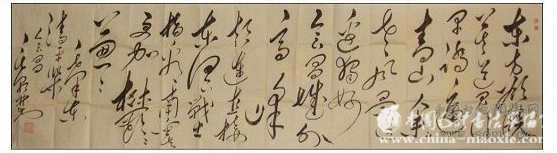 东方欲晓
莫道君行
早踏遍
青山人未
老风景
这边独好
会昌城外
高峰
颠连直接
东溟战士
指看南粤
更加郁郁
葱葱
毛泽东
清平乐
会昌
www.china-maoxie.com